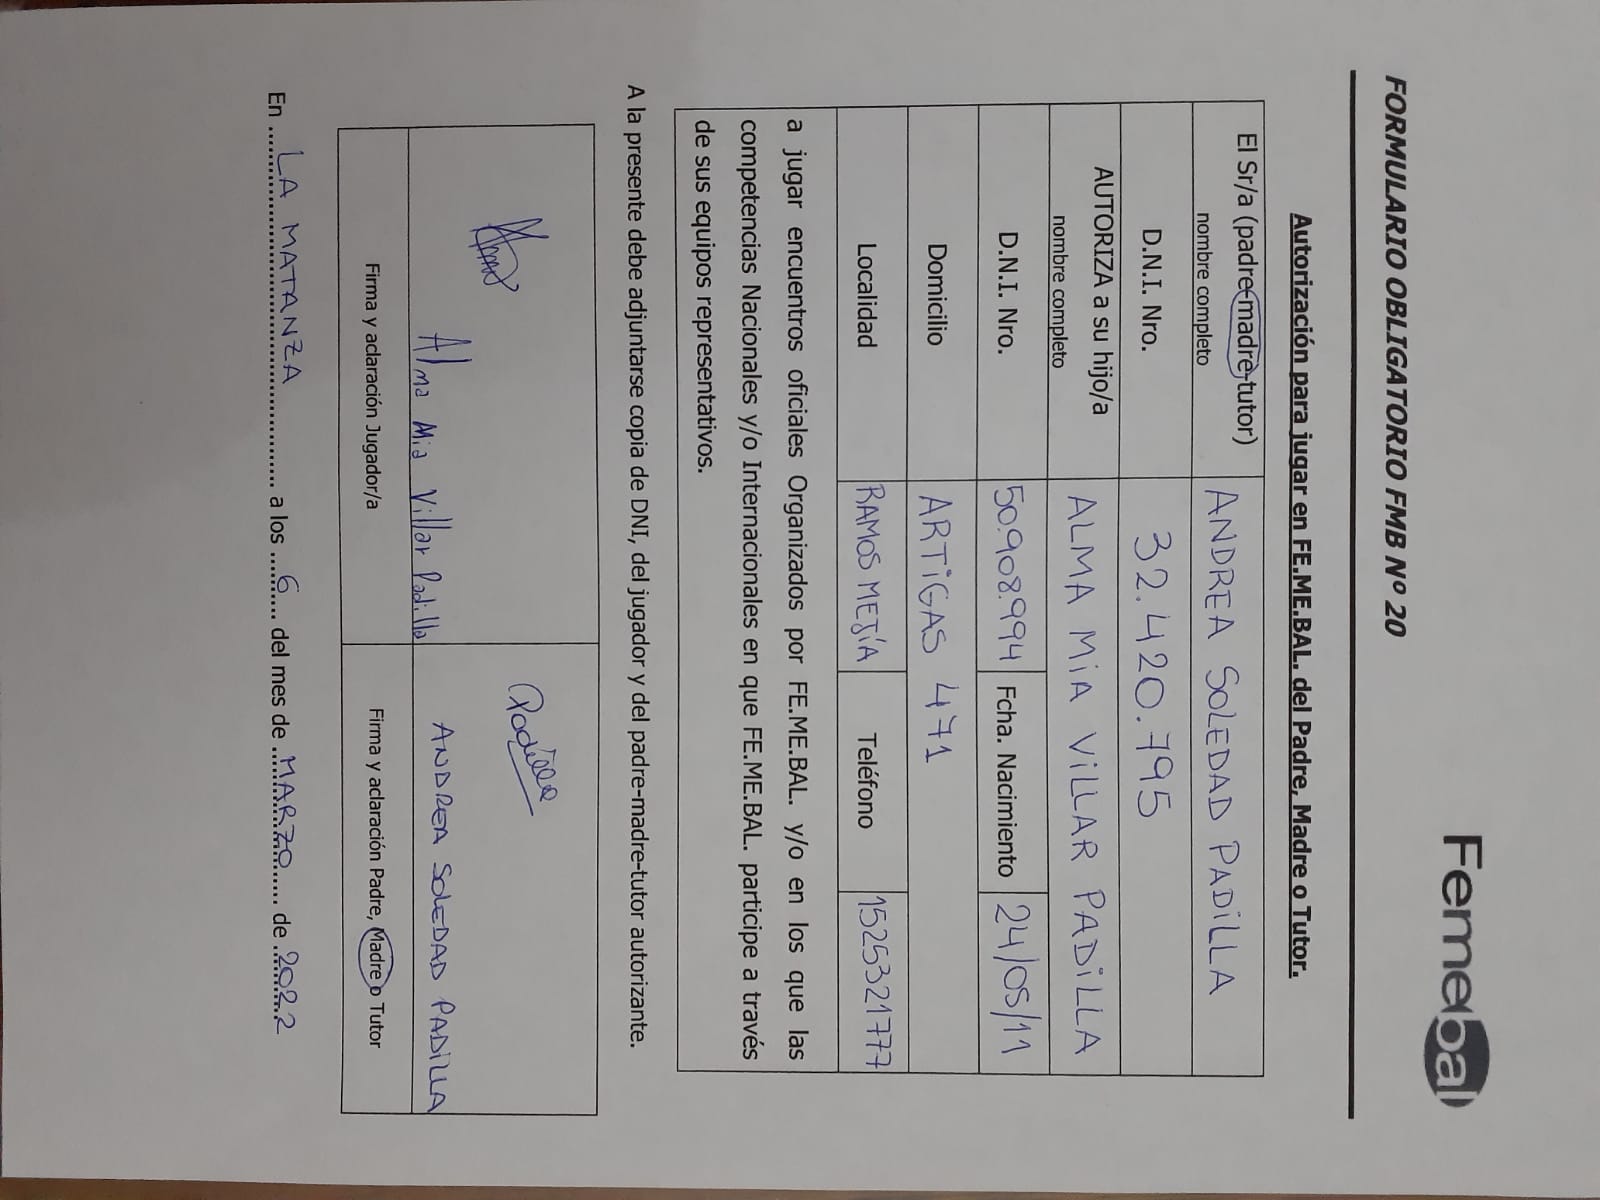 Femebal
FORMULARIO OBLIGATORIO FMB Nº 20
Autorización para jugar en FE.ME.BAL. del Padre, Madre o Tutor.
El Sr/a (padre-madre-tutor) nombre completo ANDREA SOLEDAD PADILLA
D.N.I. Nro. 32.420.795
AUTORIZA a su hijo/a nombre completo ALMA MIA VILLAR PADILLA
D.N.I. Nro. 50.908.994 Fcha. Nacimiento 24/05/11
Domicilio ARTIGAS 471
Localidad RAMOS MEJÍA Teléfono 1525321777
a jugar encuentros oficiales Organizados por FE.ME.BAL. y/o en los que las
competencias Nacionales y/o Internacionales en que FE.ME.BAL. participe a través
de sus equipos representativos.
A la presente debe adjuntarse copia de DNI, del jugador y del padre-madre-tutor autorizante.
Padilla
Alma Mia Villar Padilla ANDREA SOLEDAD PADILLA
Firma y aclaración Jugador/a Firma y aclaración Padre, Madre o Tutor
En LA MATANZA a los 6 del mes de MARZO de 2022